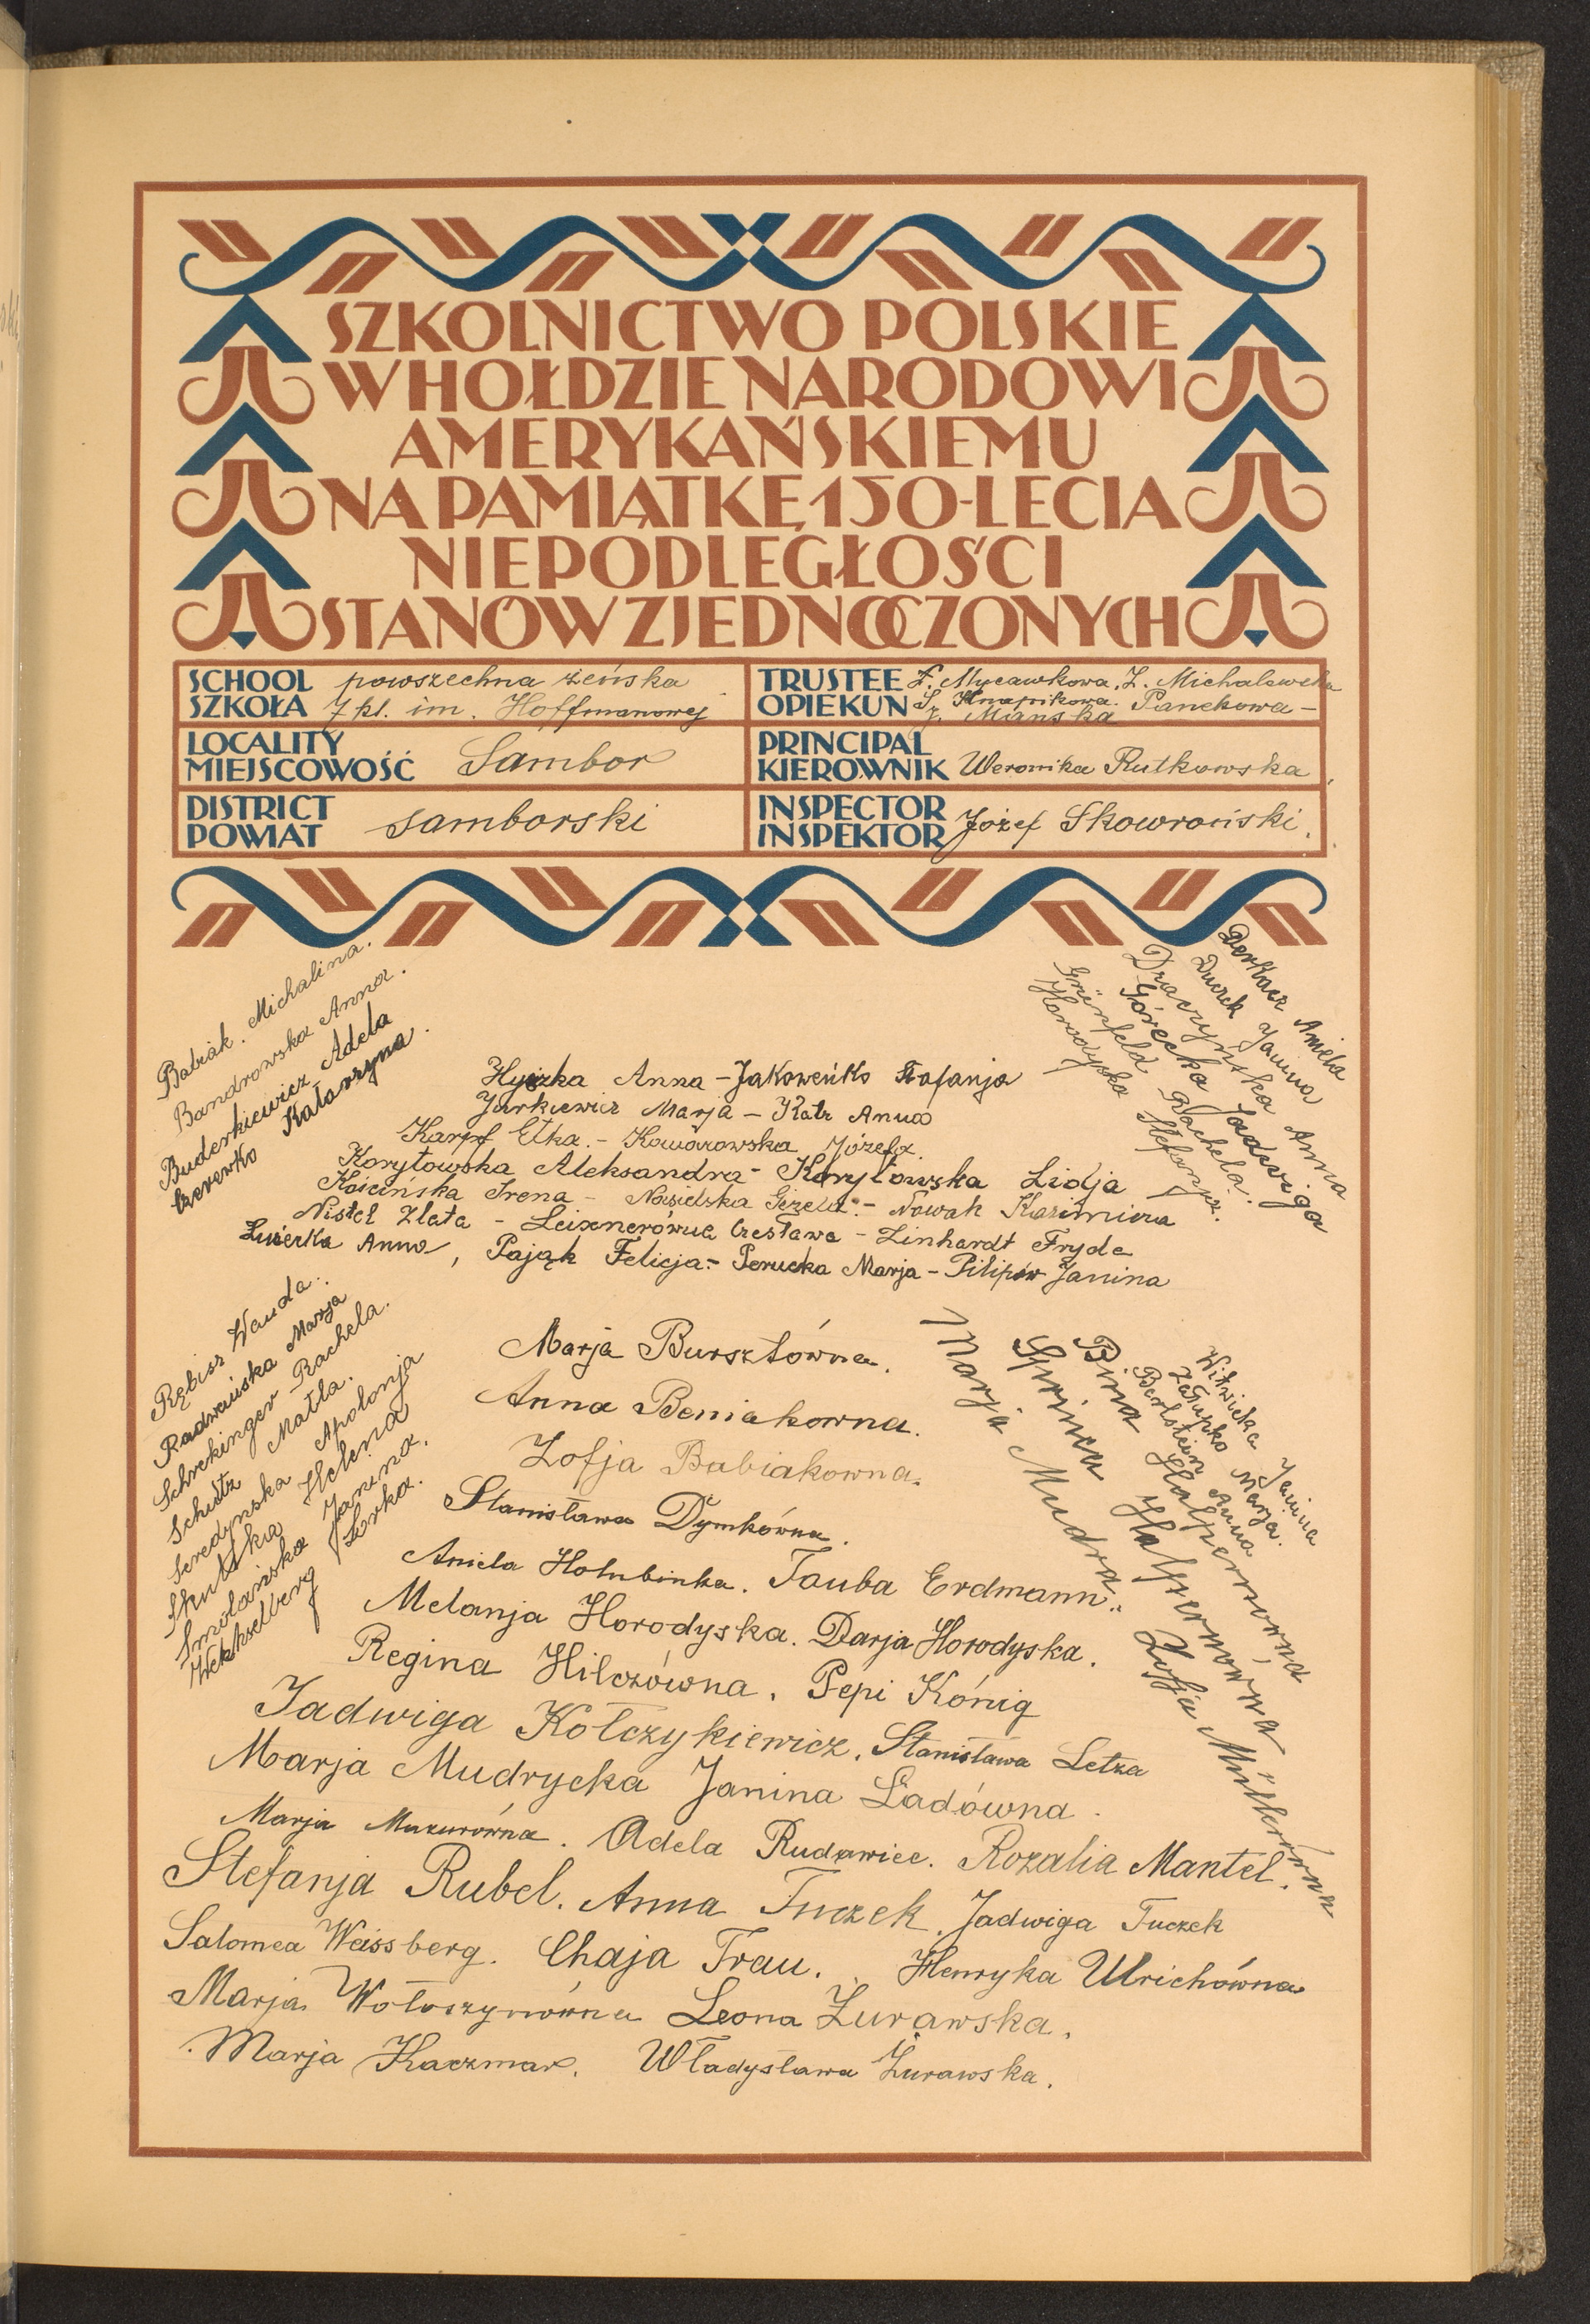 SZKOLNICTWO POLSKIE
W HOŁDZIE NARODOWI
AMERYKAŃSKIEMU
NA PAMIĄTKĘ 150-LECIA
NIEPODLEGŁOŚCI
STANÓW ZJEDNOCZONYCH
SCHOOL
SZKOŁA
powszechna żeńska
7 kl. im. Hoffmanowej
TRUSTEE
OPIEKUN
Z. Michalewska
Knapikowa. Panekowa -
Mańska
LOCALITY
MIEJSCOWOŚĆ
Sambor
PRINCIPAL
KIEROWNIK
Weronika Rutkowska
DISTRICT
POWIAT
samborski
INSPECTOR
INSPEKTOR
Józef Skowroński.
Babiak. Michalina.
Bandrowska Anna.
Buderkiewicz Adela
Czerewko Katarzyna.
Derkacz Aniela
Duczek Janina
Draczyńska Anna
Górecka Jadwiga
Grünfeld Rachela.
Horodyska Stefanja.
Hyczka Anna - Jakoweńko
Jurkiewicz Marja - Katz Anna
Karpf Etka. - Komarowska Józefa.
Korytowska Aleksandra - Korytowska Lidja
Kościńska Irena - Nasielska Gizela. - Nowak Kazimiera
Nistel Zlata - Leixnerówna Czesława - Linhardt Fryda
Anna, Pająk Felicja. - Perucka Marja - Pilipów Janina
Rębisz Wanda.
Radwańska Marja
Schrekinger Rachela.
Schutz Matla.
Seredyńska Apolonja
Skubska Helena
Smolańska Janina.
Wekhselberg Lorka.
Witwicka Janina
Załupko Marja.
Berlstein Anna
Bina Halpernówna
Sprinca Halpernówna
Marja Mudra.
Zofja Müllerówna
Marja Bursztówna.
Anna Beniakowna.
Zofja Babiakowna.
Stanisława Dymkówna.
Aniela Hołubinka. Tauba Erdmann.
Melanja Horodyska. Darja Horodyska.
Regina Hilczówna. Pepi König
Jadwiga Kołczykiewicz. Stanisława Letza
Marja Mudrycka Janina Ładówna.
Marja Mazurówna. Adela Rudawiec. Rozalia Mantel.
Stefanja Rubel. Anna Tuczek. Jadwiga Tuczek
Salomea Weissberg. Chaja Trau. Henryka Ulrichówna
Marja Wołoszynówna Leona Żurawska.
Marja Kaczmar. Władysława Żurawska.